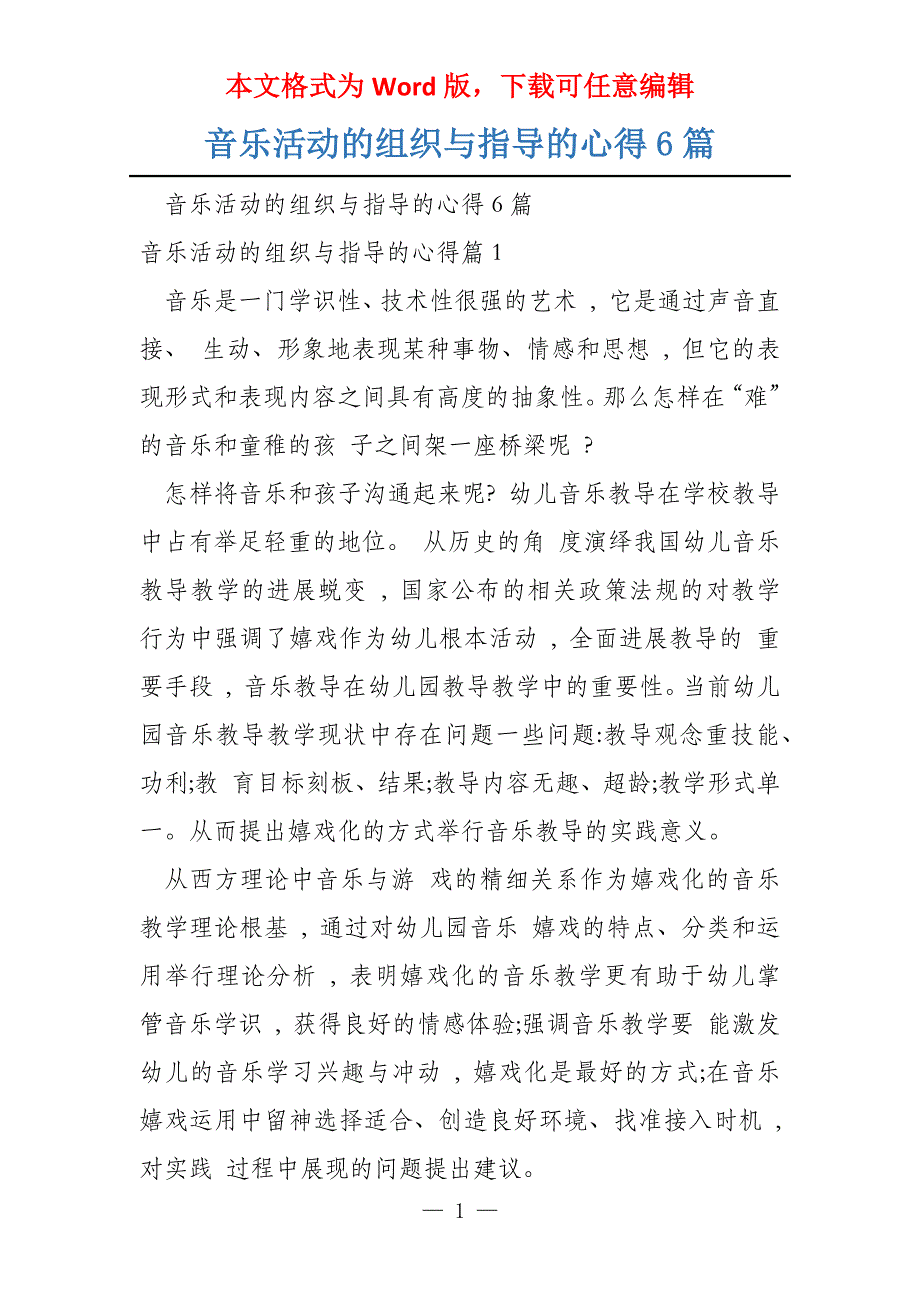 本文格式为 Word 版，下载可任意编辑
音乐活动的组织与指导的心得 6 篇
音乐活动的组织与指导的心得 6 篇
音乐活动的组织与指导的心得篇 1
音乐是一门学识性、技术性很强的艺术 , 它是通过声音直
接、 生动、形象地表现某种事物、情感和思想 , 但它的表
现形式和表现内容之间具有高度的抽象性。那么怎样在“难”
的音乐和童稚的孩 子之间架一座桥梁呢 ?
怎样将音乐和孩子沟通起来呢? 幼儿音乐教导在学校教导
中占有举足轻重的地位。 从历史的角 度演绎我国幼儿音乐
教导教学的进展蜕变 , 国家公布的相关政策法规的对教学
行为中强调了嬉戏作为幼儿根本活动 , 全面进展教导的 重
要手段 , 音乐教导在幼儿园教导教学中的重要性。当前幼儿
园音乐教导教学现状中存在问题一些问题:教导观念重技能、
功利;教 育目标刻板、结果;教导内容无趣、超龄;教学形式单
一。从而提出嬉戏化的方式举行音乐教导的实践意义。
从西方理论中音乐与游 戏的精细关系作为嬉戏化的音乐
教学理论根基 , 通过对幼儿园音乐 嬉戏的特点、分类和运
用举行理论分析 , 表明嬉戏化的音乐教学更有助于幼儿掌
管音乐学识 , 获得良好的情感体验;强调音乐教学要 能激发
幼儿的音乐学习兴趣与冲动 , 嬉戏化是最好的方式;在音乐
嬉戏运用中留神选择适合、创造良好环境、找准接入时机 ,
对实践 过程中展现的问题提出建议。
— 1 —